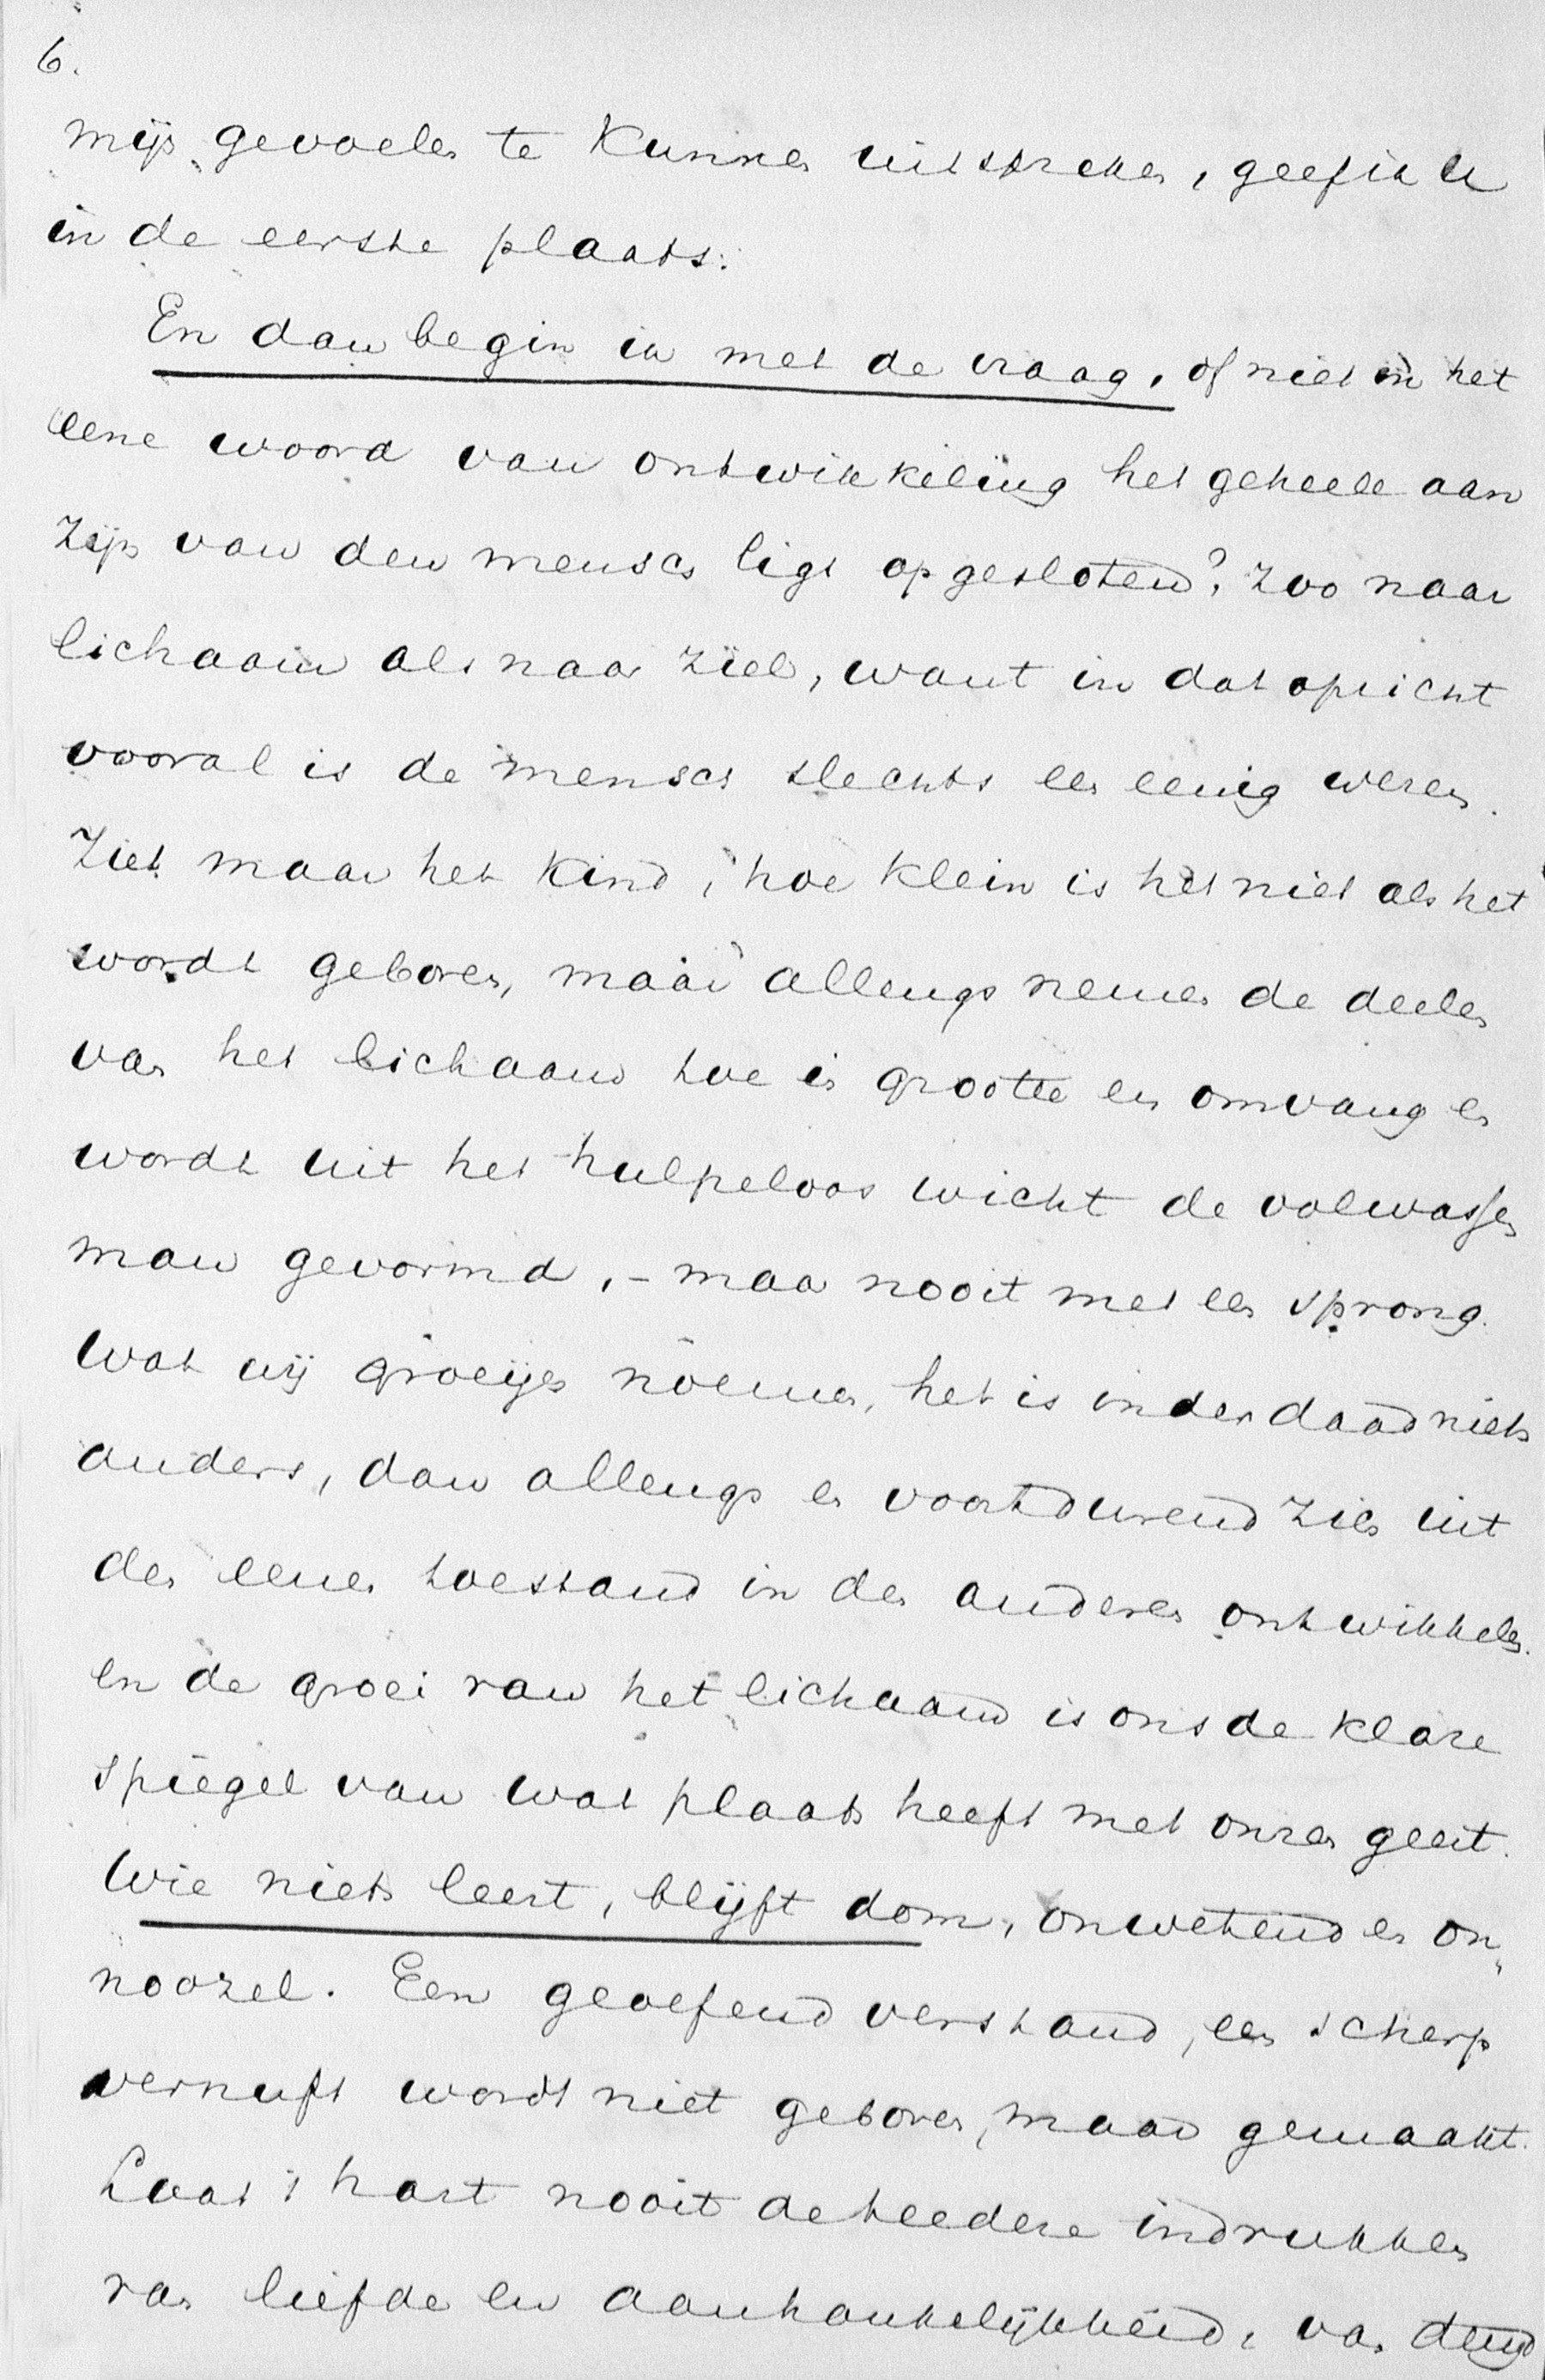 6.
mijn gevoelen te kunnen uitspreken, geef ik u
in de eerste plaats.
En dan begin ik met de vraag, of niet in het
eene woord van ontwikkeling het geheele aan
zijn van den mensch ligt opgesloten? Zoo naar
lichaam als naar ziel, want in dat opzicht
vooral is de mensch slechts een eenig wezen.
Ziet maar het kind, hoe klein is het niet als het
wordt geboren, maar allengs nemen de deelen
van het lichaam toe in grootte en omvang en
wordt uit het hulpeloos wicht de volwassen
man gevormd, - maar nooit met een sprong.
Wat wij groeijen noemen, het is inderdaad niets
anders, dan allengs en voortdurend zich uit
den eenen toestand in den anderen ontwikkelen.
en de groei van het lichaam is ons de klare
spiegel van wat plaats heeft met onzen geest.
Wie niets leert, blijft dom, onwetend en on„
noozel. Een geoefend verstand, een scherp
vernuft wordt niet geboren, maar gemaakt.
Laat 't hart nooit de teedere indrukken
van liefde en aanhankelijkheid, van deugd